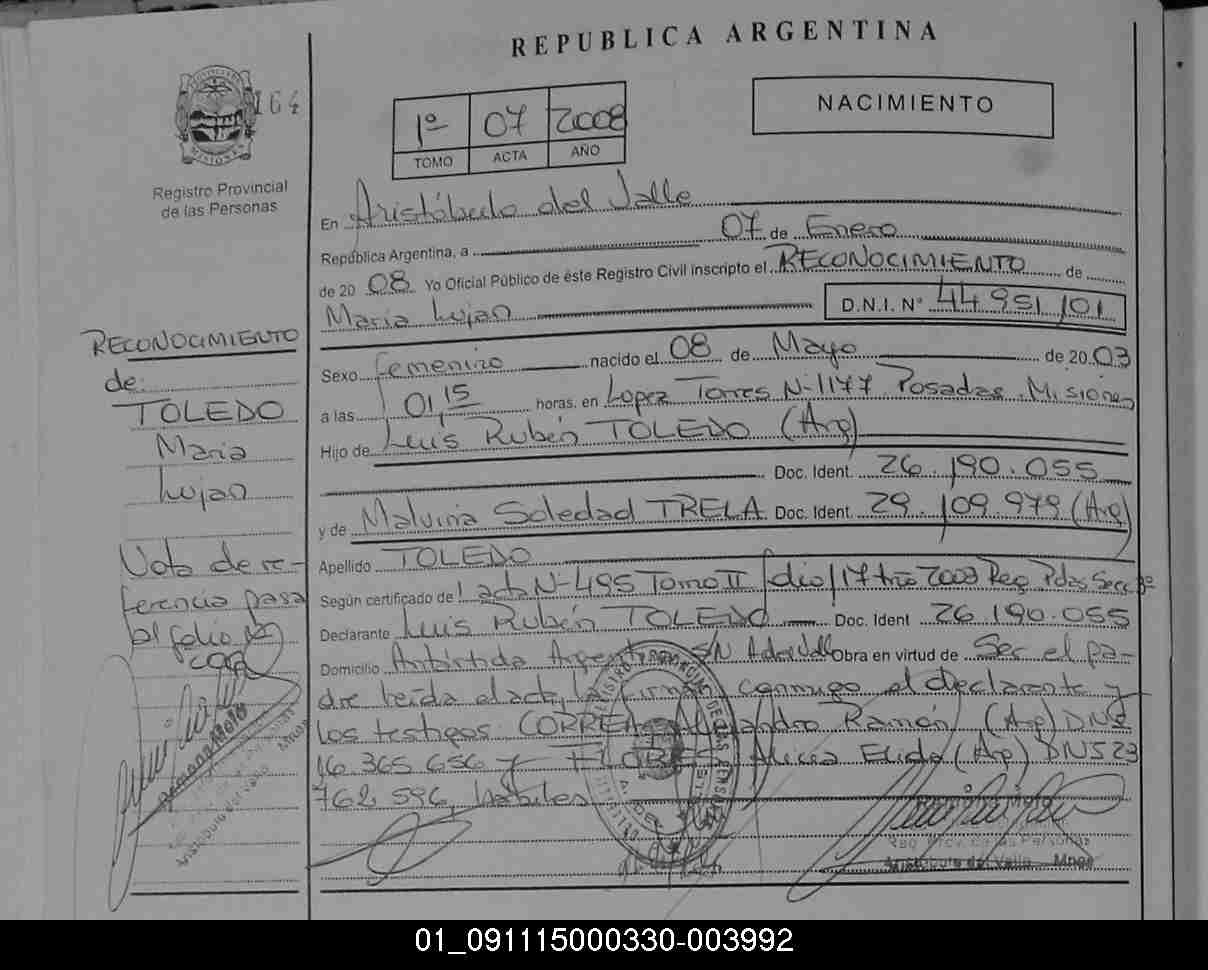 REPUBLICA ARGENTINA
164
MISIONES
Registro Provincial
de las Personas
1º 07 2008
TOMO ACTA AÑO
NACIMIENTO
En Aristóbulo del Valle
República Argentina, a 07 de Enero
de 20 08 Yo Oficial Público de éste Registro Civil inscripto el RECONOCIMIENTO de
Maria Lujan D.N.I. N° 44.951.101
Sexo femenino nacido el 08 de Mayo de 20 03
a las 01,15 horas. en Lopez Torres N-1177 Posadas. Misiones
Hijo de Luis Rubén TOLEDO (Arg)
Doc. Ident. 26.190.055
y de Malvina Soledad TRELA Doc. Ident. 29.109.979 (Arg)
Apellido TOLEDO
Según certificado de acta N-495 Tomo II año 2003 Reg. Pdas Secc
Declarante Luis Rubén TOLEDO Doc. Ident 26.190.055
Domicilio Antártida Argentina S/N A del Valle Obra en virtud de Ser el pa-
dre leída el acta, la firman conmigo el declarante y
los testigos CORREA Ramón (Arg) DNI
16.365.656 y Alicia Elida (Arg) DNI 23
762.596, hábiles
RECONOCIMIENTO
de:
TOLEDO
Maria
Lujan
Nota de re-
ferencia pasa
al folio
Reg. Prov. de las Personas
Aristóbulo del Valle Mnes
01_091115000330-003992